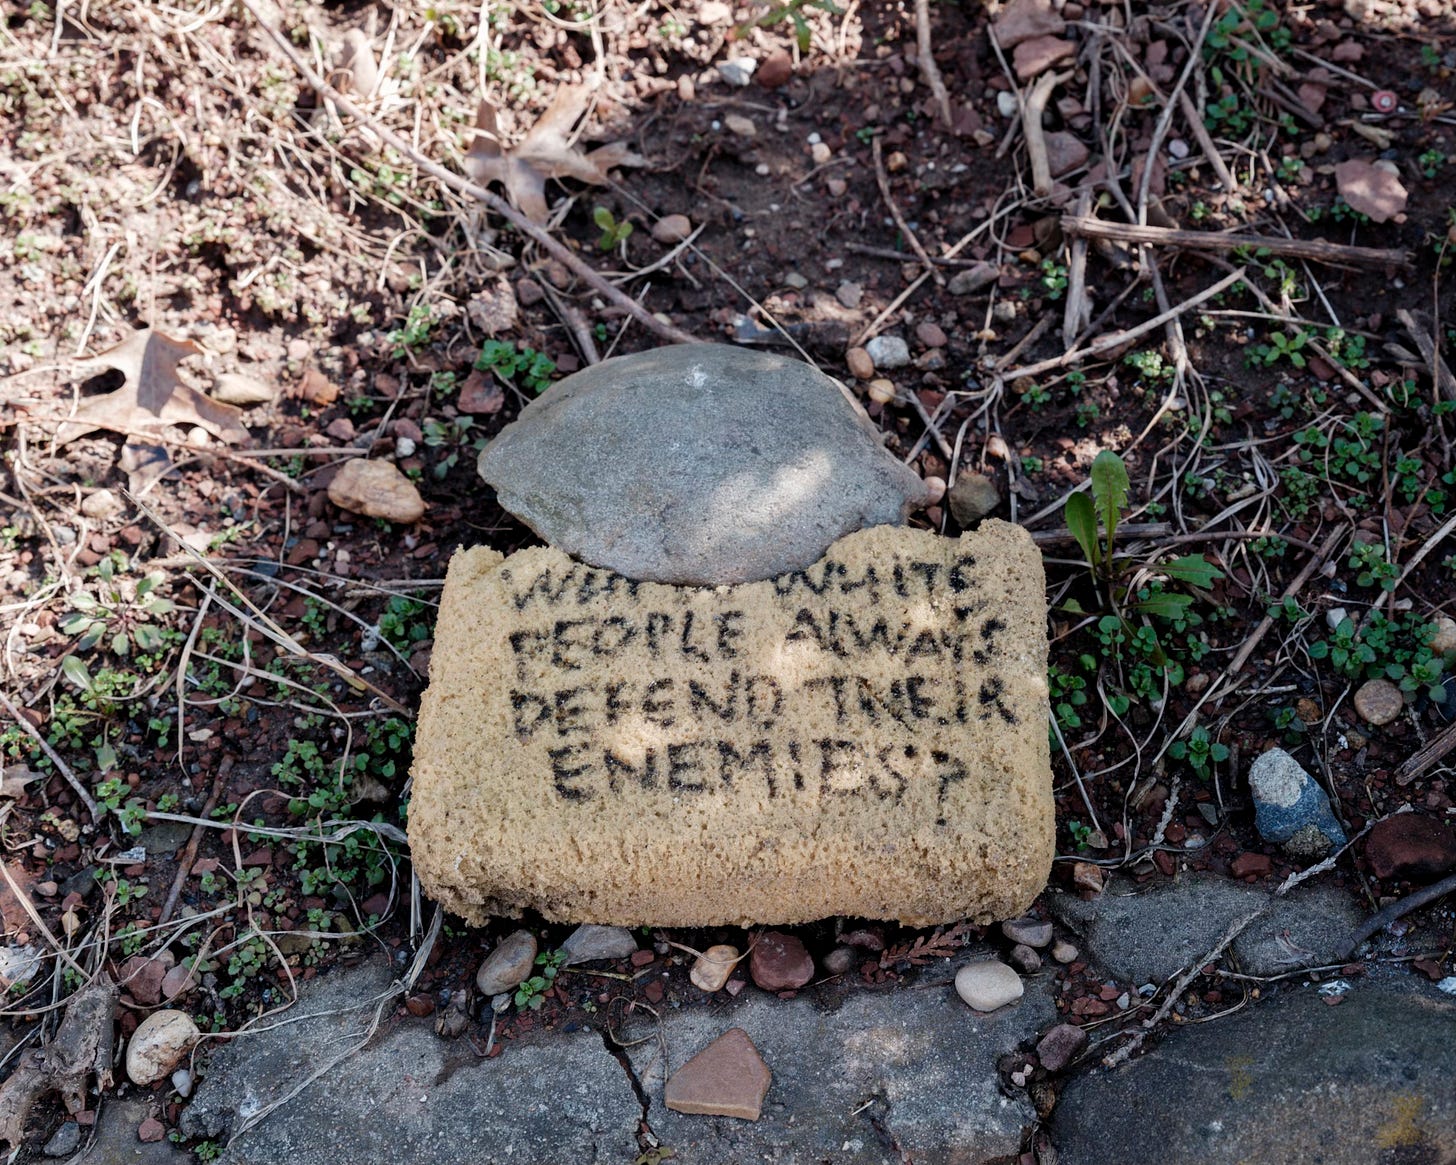 WHITE
PEOPLE ALWAYS
DEFEND THEIR
ENEMIES?